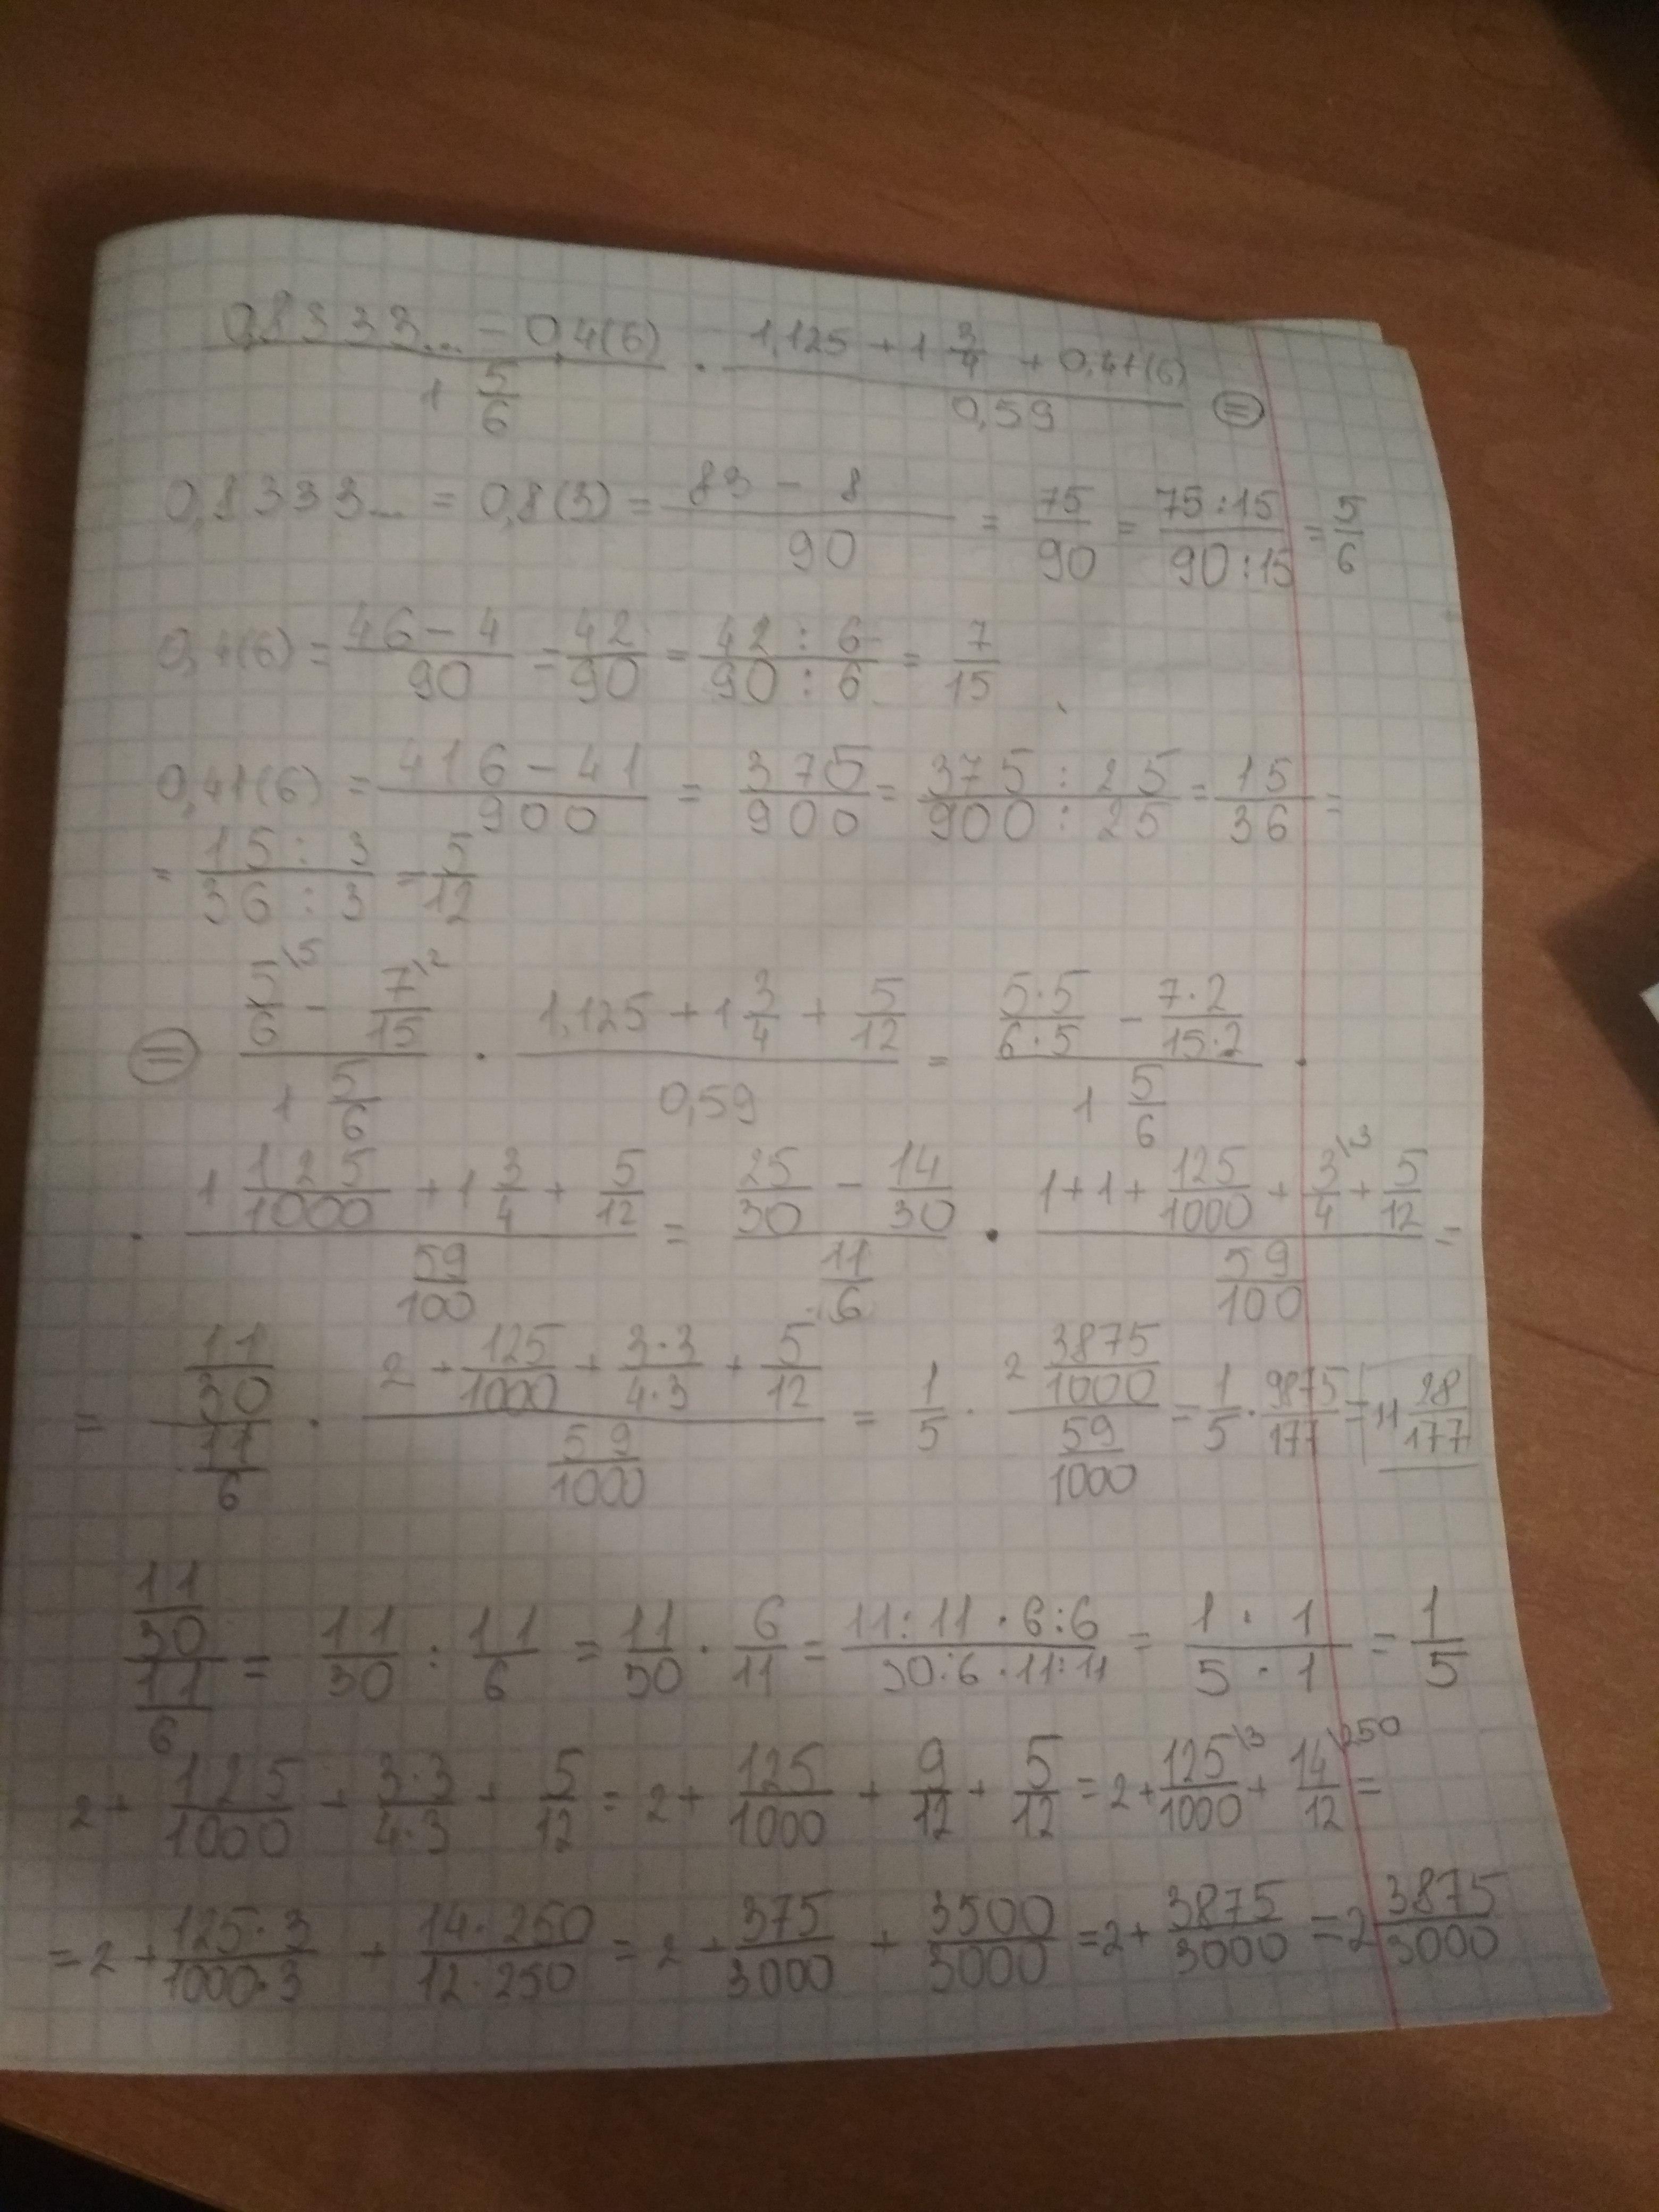 (0,8333... - 0,4(6))/(1 5/6) · (1,125 + 1 3/4 + 0,41(6))/(0,59) (=)
0,8333... = 0,8(3) = (83 - 8)/90 = 75/90 = (75:15)/(90:15) = 5/6
0,4(6) = (46 - 4)/90 = 42/90 = (42 : 6)/(90 : 6) = 7/15
0,41(6) = (416 - 41)/900 = 375/900 = (375 : 25)/(900 : 25) = 15/36 =
= (15 : 3)/(36 : 3) = 5/12
(=) (5/6 \5 - 7/15 \2)/(1 5/6) · (1,125 + 1 3/4 + 5/12)/(0,59) = ((5·5)/(6·5) - (7·2)/(15·2))/(1 5/6) ·
· (1 125/1000 + 1 3/4 + 5/12)/(59/100) = (25/30 - 14/30)/(11/6) · (1+1+ 125/1000 + 3/4 \3 + 5/12)/(59/100) =
= (11/30)/(11/6) · (2 + 125/1000 + (3·3)/(4·3) + 5/12)/(59/1000) = 1/5 · (2 3875/1000)/(59/1000) = 1/5 · 9875/177 = 11 28/177
(11/30)/(11/6) = 11/30 : 11/6 = 11/30 · 6/11 = (11:11 · 6:6)/(30:6 · 11:11) = (1 · 1)/(5 · 1) = 1/5
2 + 125/1000 + (3·3)/(4·3) + 5/12 = 2 + 125/1000 + 9/12 + 5/12 = 2 + 125/1000 \3 + 14/12 \250 =
= 2 + (125·3)/(1000·3) + (14·250)/(12·250) = 2 + 375/3000 + 3500/3000 = 2 + 3875/3000 = 2 3875/3000